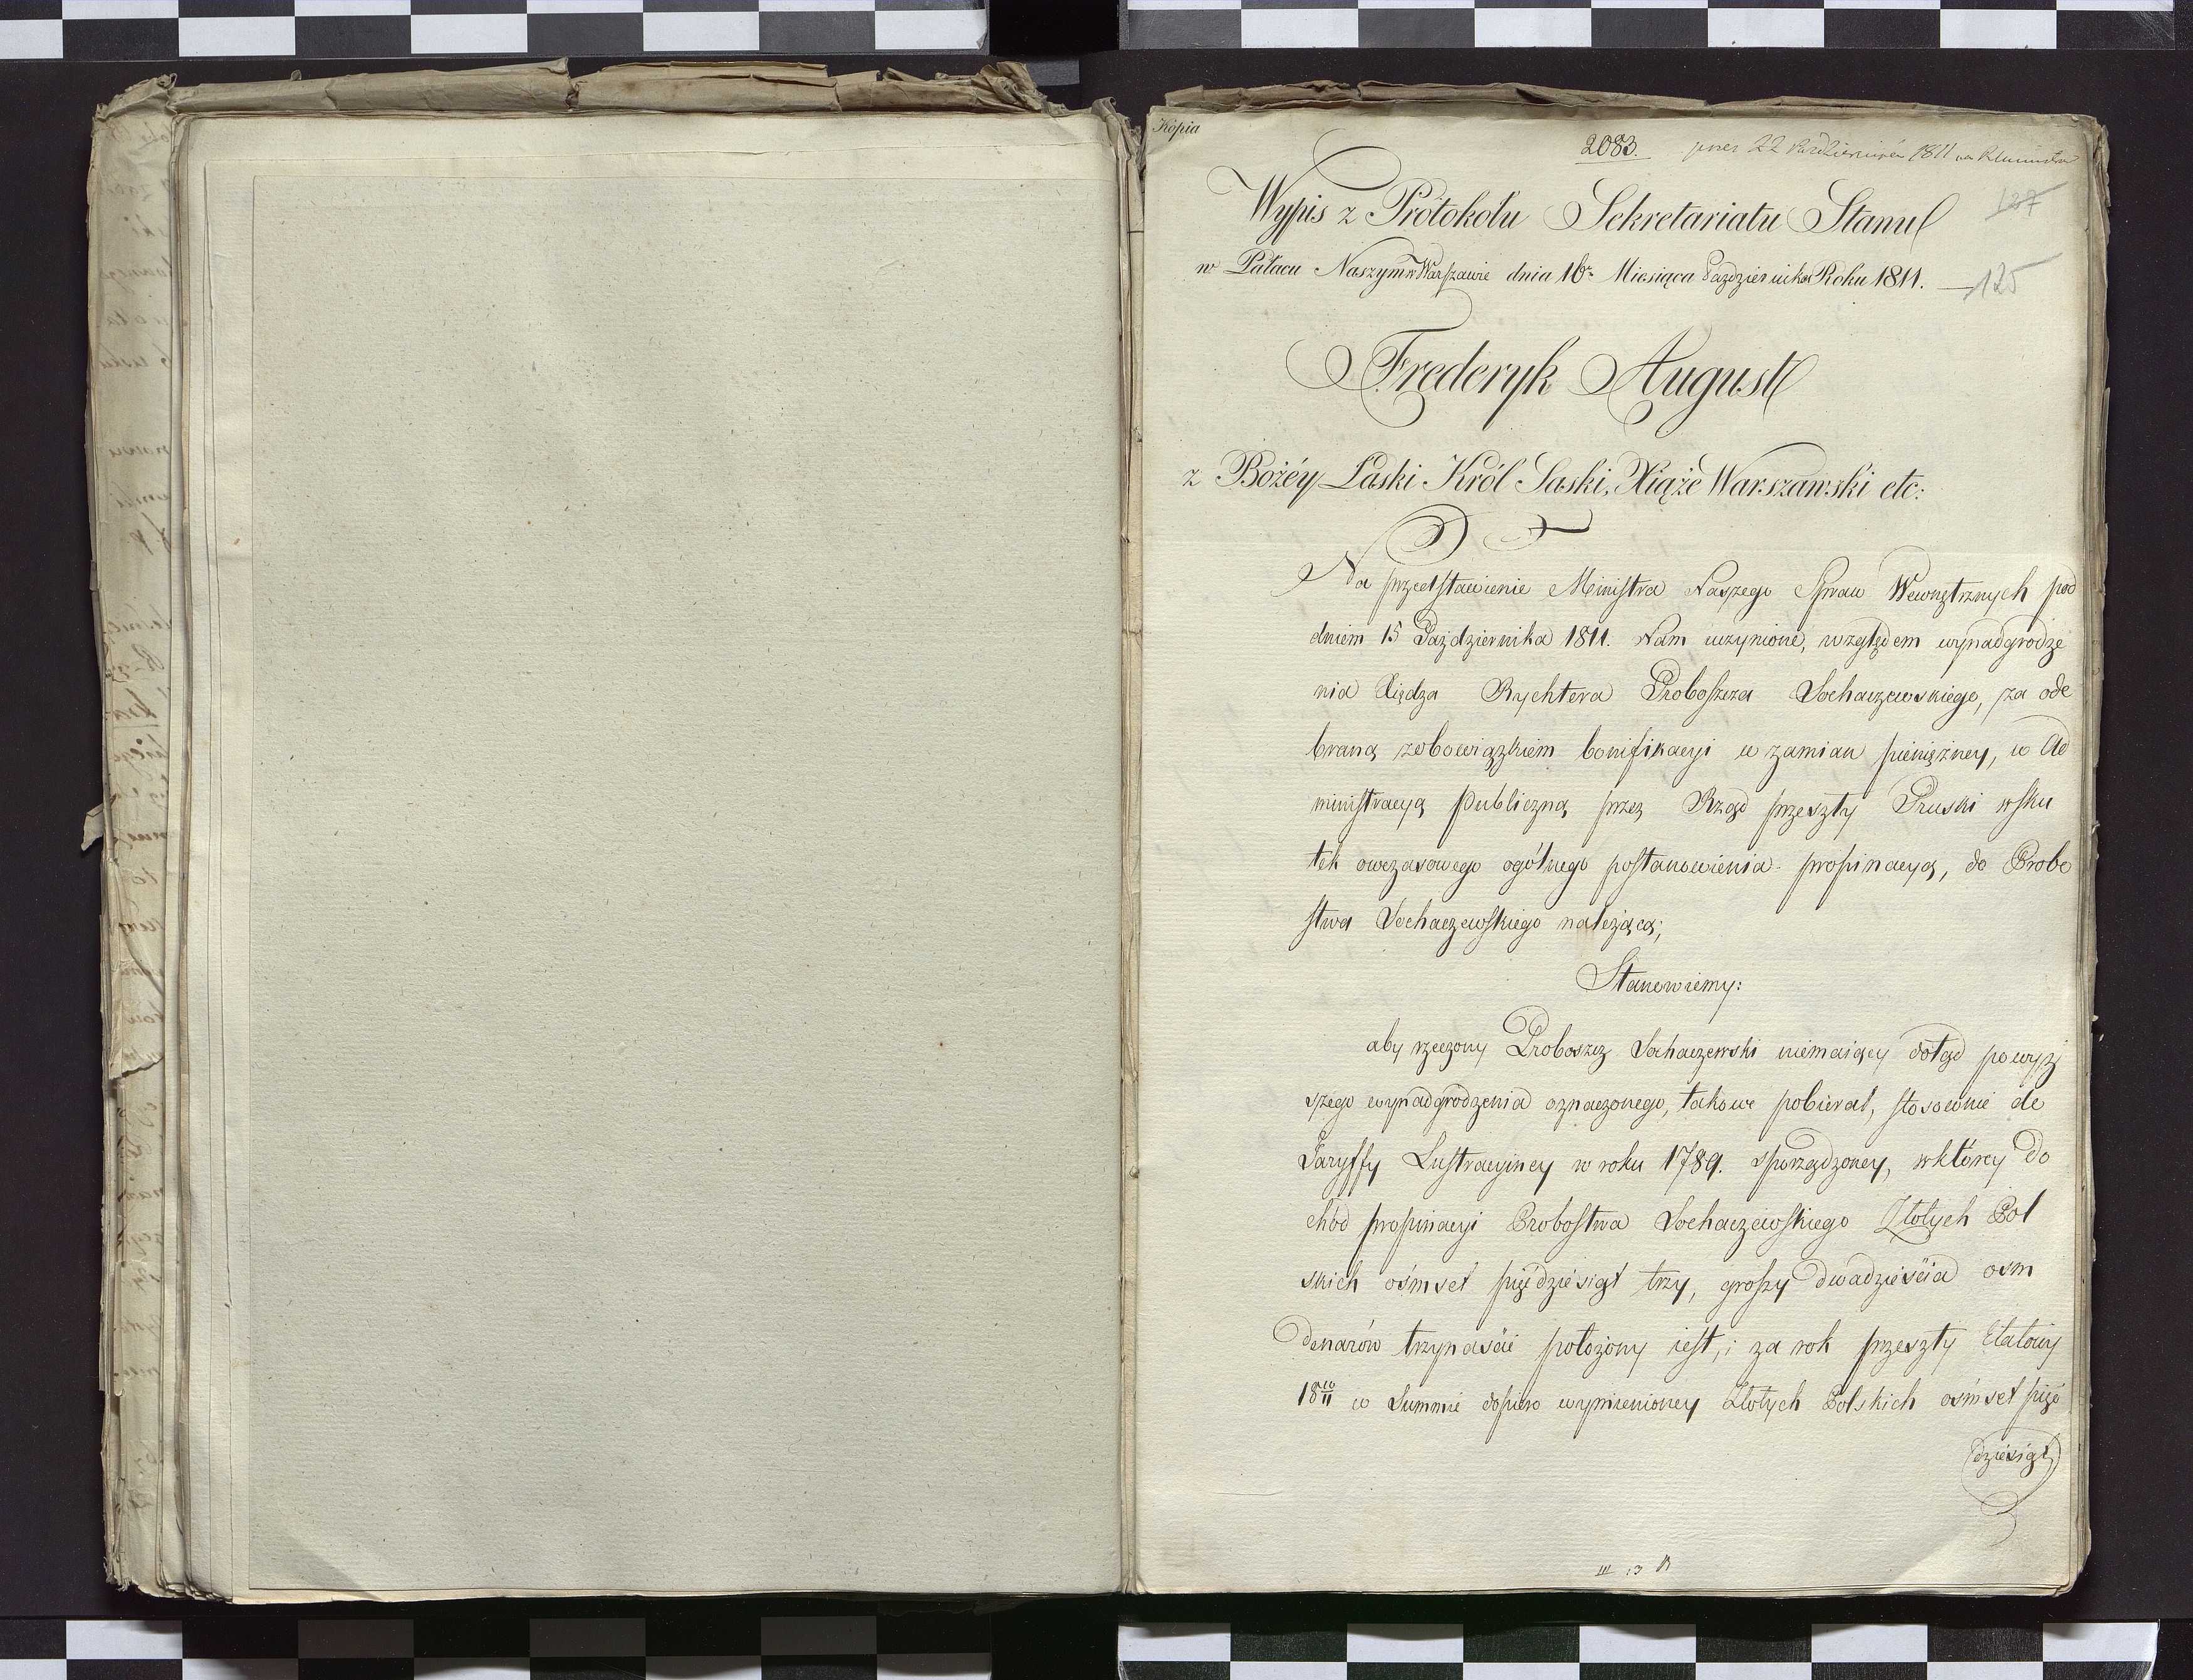 Kopia
2083. 22 Października 1811
127
Wypis z Protokołu Sekretariatu Stanu
w Pałacu Naszym w Warszawie dnia 16. Miesiąca Października Roku 1811.
125
Frederyk August
z Bożéy Łaski Król Saski, Xiąże Warszawski etc:
Na przedstawienie Ministra Naszego Spraw Wewnętrznych pod
dniem 15 Października 1811. Nam uczynione, względem wynadgrodze
nia Xiędza Rychtera Proboszcza Sochaczewskiego, za ode
braną zobowiązkiem bonifikacyi w zamian pieniężney, w Ad
ministracyą Publiczną przez Rząd przeszły Pruski wsku
tek owczasowego ogólnego postanowienia propinacyą, do Probo
stwa Sochaczewskiego należącą;
Stanowiemy:
aby rzeczony Proboszcz Sochaczewski niemaiący dotąd powyż
szego wynadgrodzenia oznaczonego, takowe pobierał, stosownie do
Taryffy Lustracyiney w roku 1789. sporządzoney, wktórey do
chód propinacyi Probostwa Sochaczewskiego Złotych Pol
skich ośmset pięćdziesiąt trzy, groszy dwadzieścia osm
denarów trzynaście położony iest, i za rok przeszły Etatowy
18 10/11 w Summie dopiero wymienioney Złotych Polskich ośmset pięć
dziesiąt